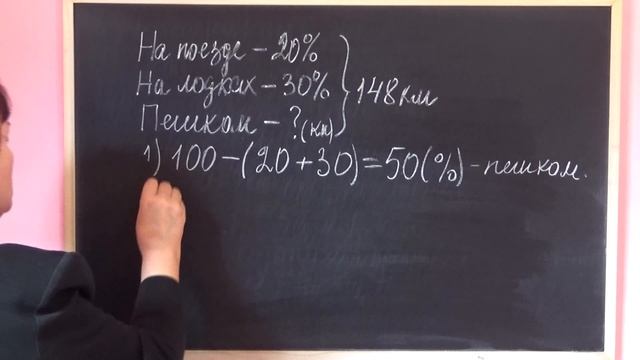 На поезде – 20%
На лодках – 30%
Пешком – ? (км)
148 км
1) 100 – (20 + 30) = 50 (%) – пешком.